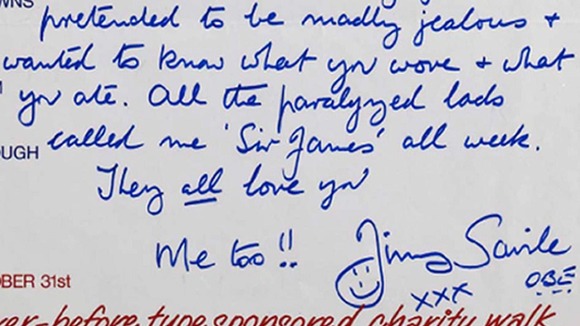 OWNS
pretended to be madly jealous +
wanted to know what you wore + what
you ate. All the paralyzed lads
OUGH called me 'Sir James' all week.
They all love you
Me too!! Jimmy Savile
OBE
xxx
OBER 31st
ver-before, type sponsored charity walk